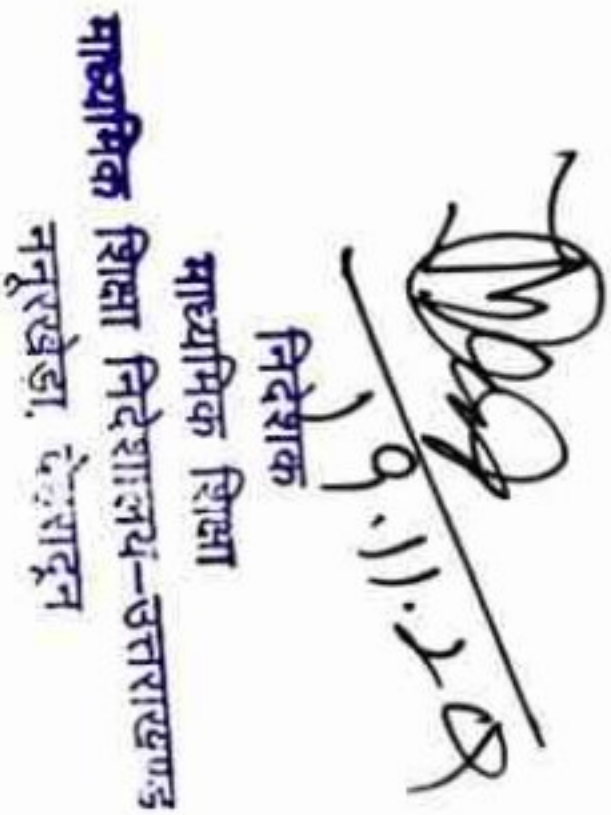 19.11.20
निदेशक
माध्यमिक शिक्षा
माध्यमिक शिक्षा निदेशालय-उत्तराखण्ड
ननूरखेड़ा, देहरादून